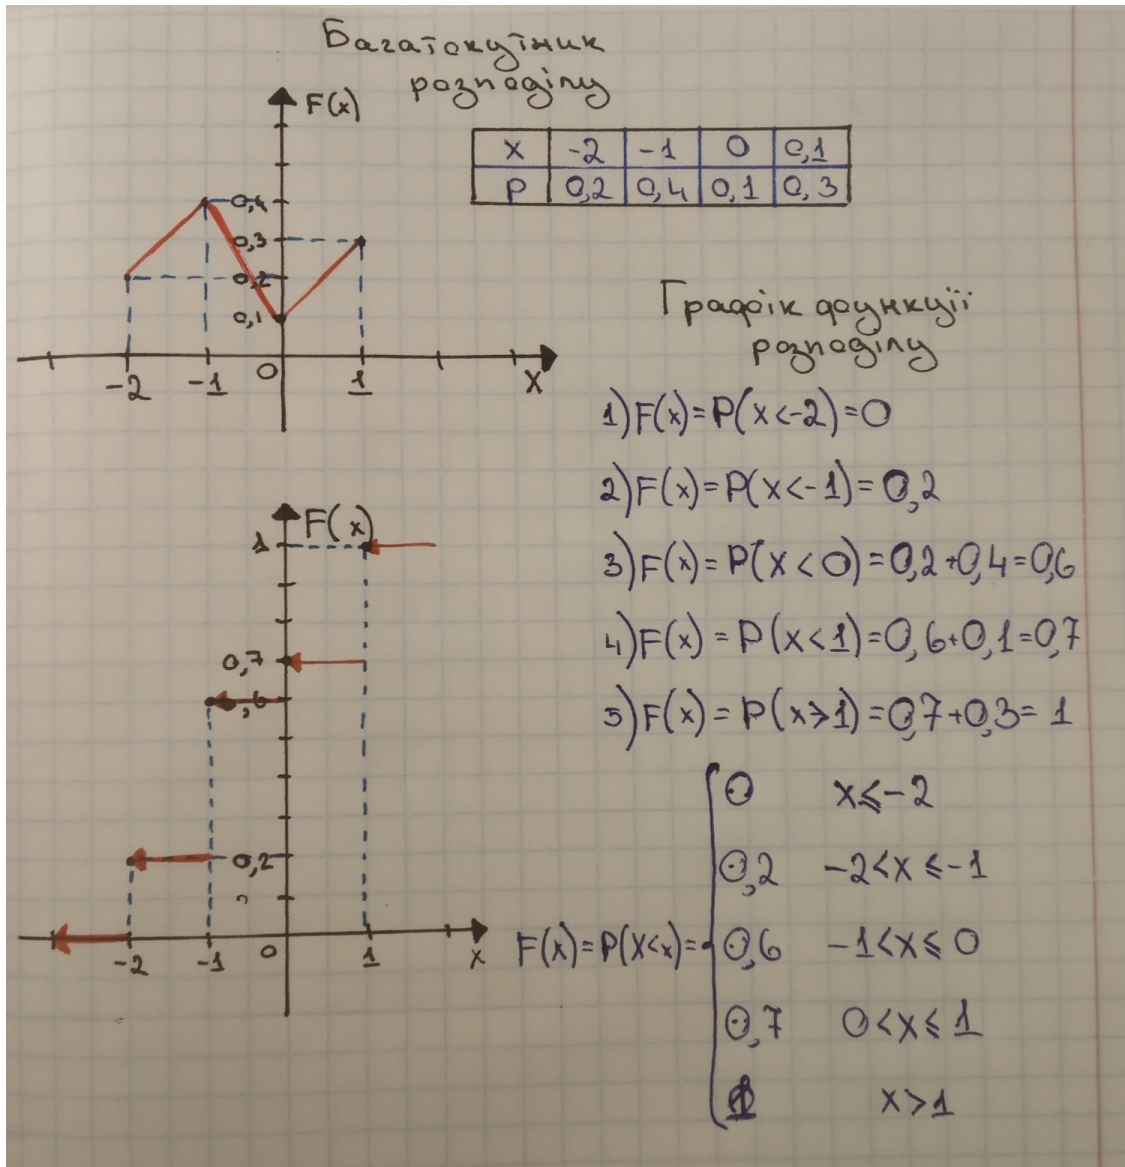 Багатокутник
розподілу
F(x)
X -2 -1 0 0,1
P 0,2 0,4 0,1 0,3
0,4
0,3
0,2
0,1
-2 -1 0 1 X
Графік функції
розподілу
1) F(x) = P(x<-2) = 0
2) F(x) = P(x<-1) = 0,2
3) F(x) = P(x<0) = 0,2+0,4=0,6
4) F(x) = P(x<1) = 0,6+0,1=0,7
5) F(x) = P(x>1) = 0,7+0,3= 1
F(x)
1
0,7
0,2
-2 -1 0 1 x
F(x) = P(X<x) =
0 x⩽-2
0,2 -2<x⩽-1
0,6 -1<x⩽0
0,7 0<x⩽1
1 x>1